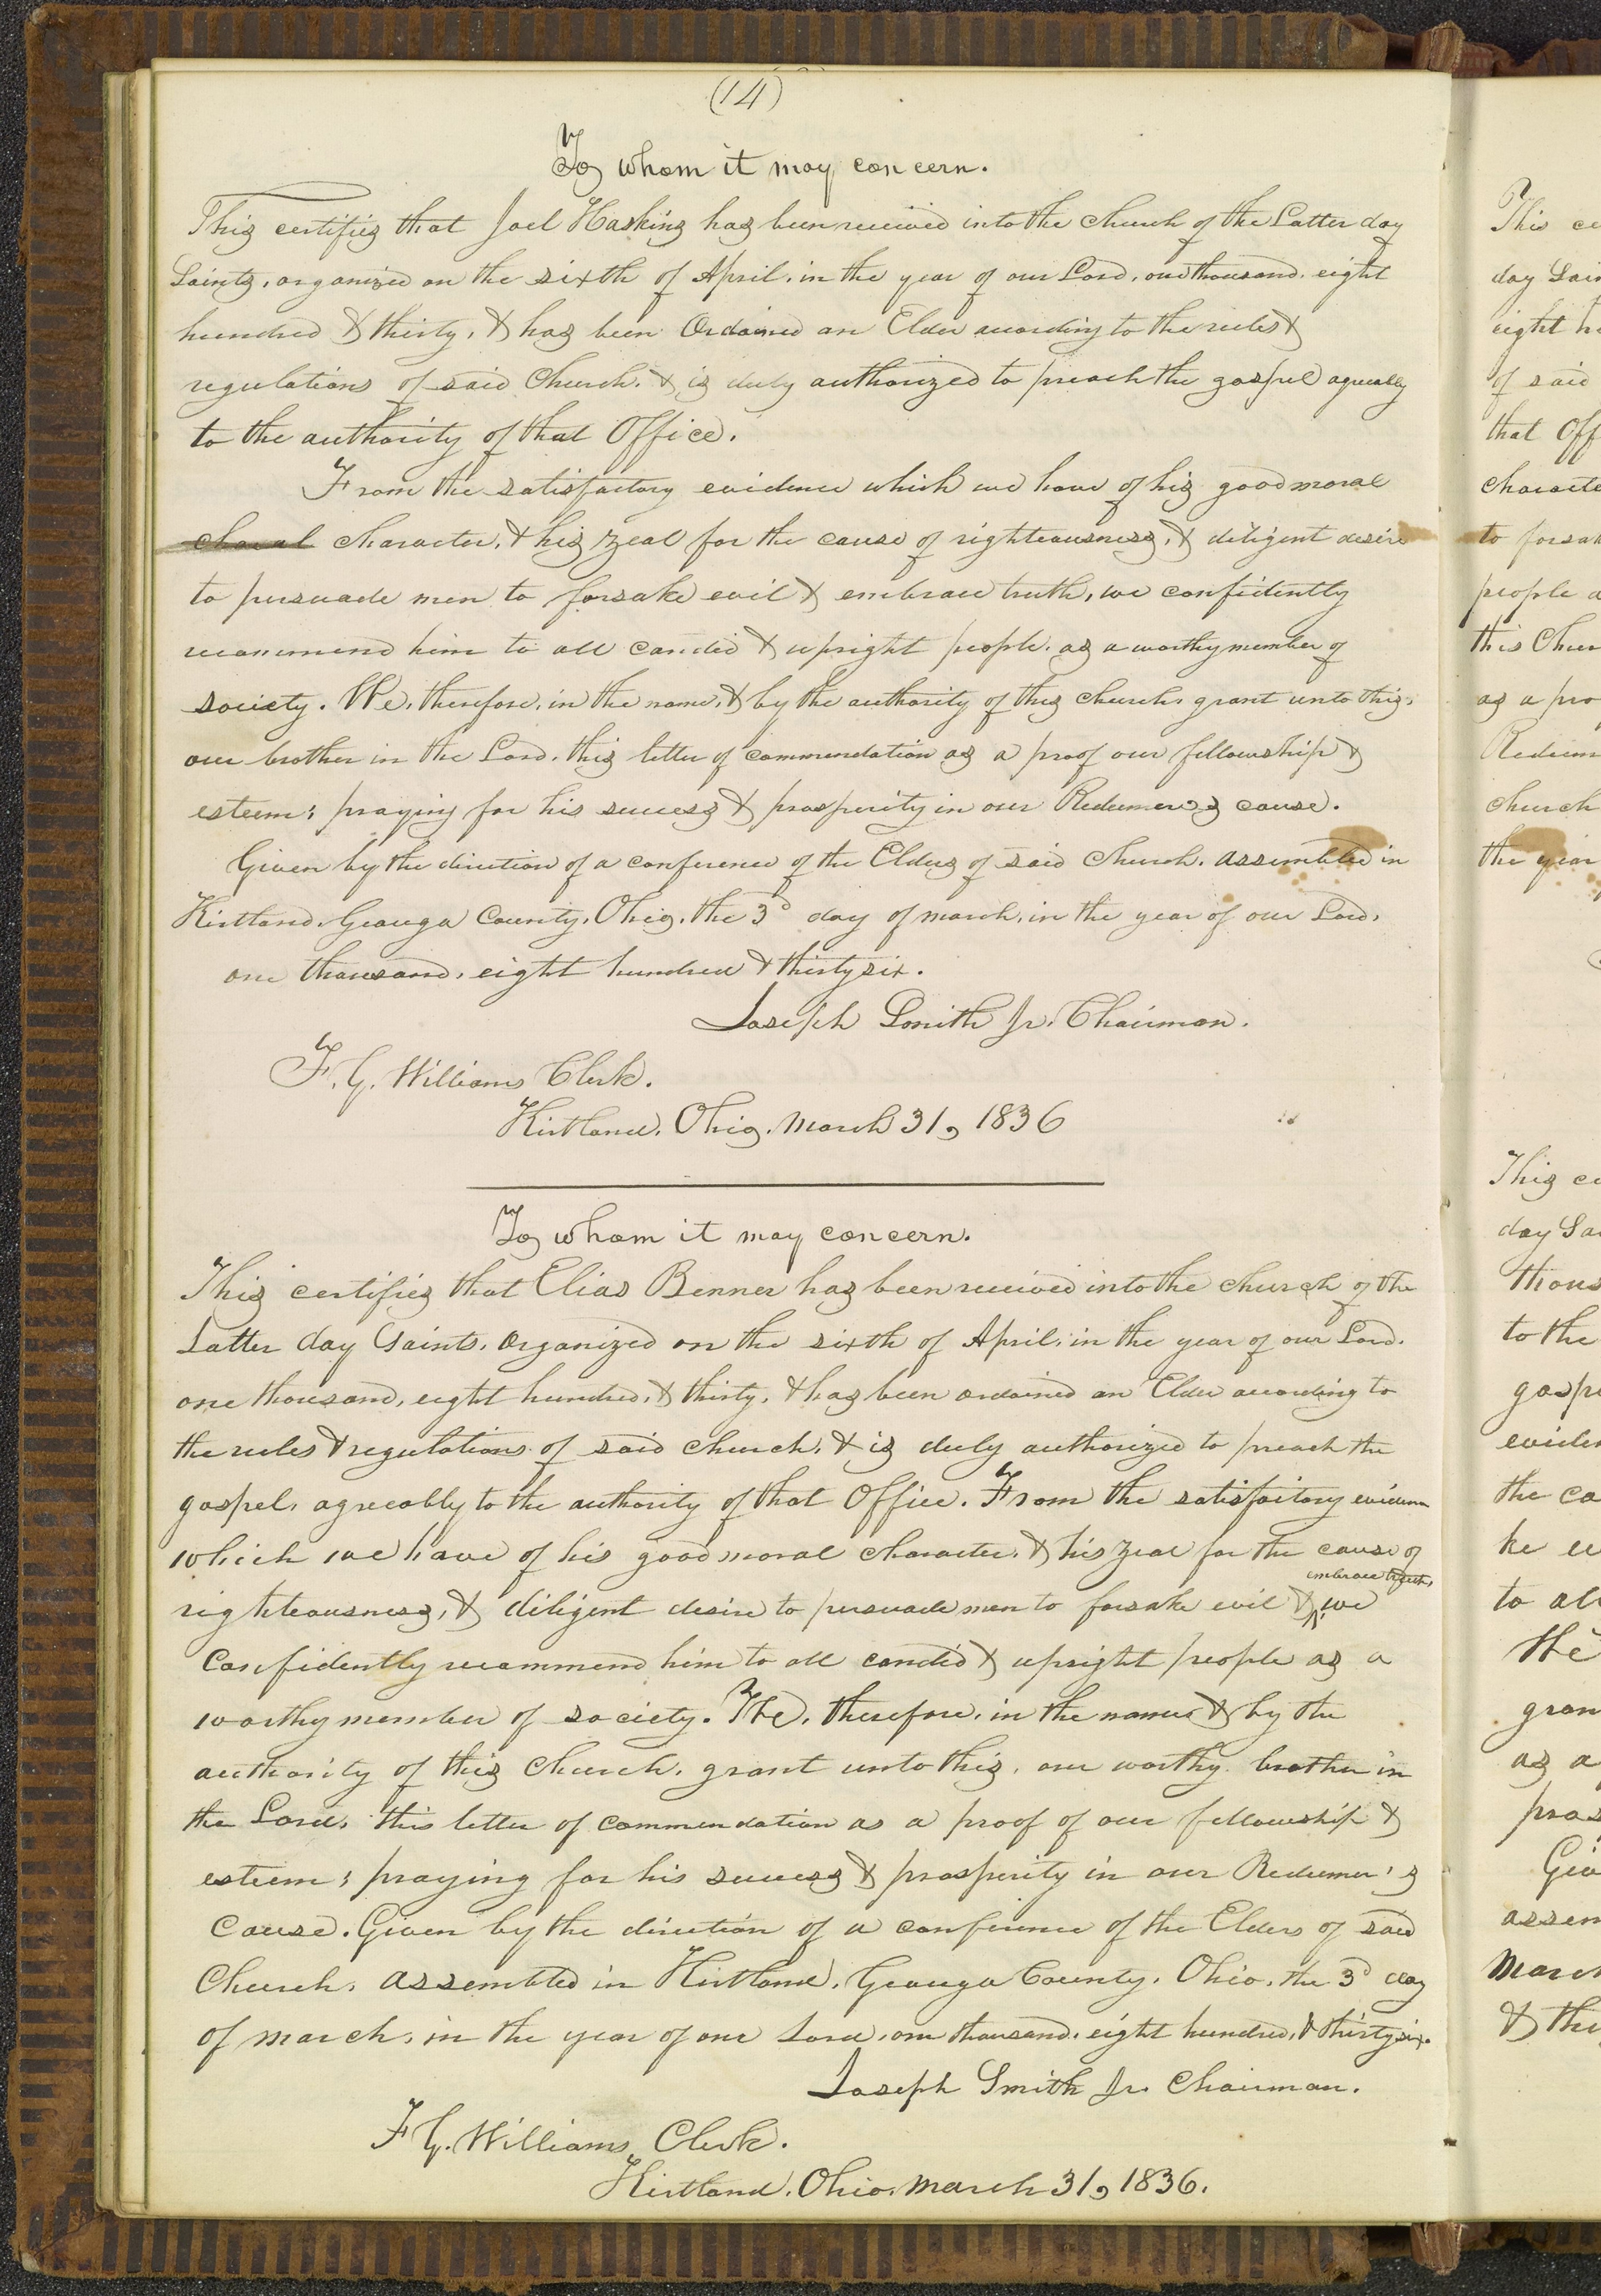 (14)
To whom it may concern.
This certifies that Joel Haskins has been received into the church of the Latter day
Saints, organized on the sixth of April, in the year of our Lord, one thousand, eight
hundred & thirty, & has been Ordained an Elder according to the rules &
regulations of said Church, & is duly authorized to preach the gospel agreeably
to the authority of that Office.
From the satisfactory evidence which we have of his good moral
charal character, & his zeal for the cause of righteousness, & diligent desire
to persuade men to forsake evil & embrace truth, we confidently
recommend him to all candid & upright people, as a worthy member of
society. We, therefore, in the name, & by the authority of this church, grant unto this,
our brother in the Lord, this letter of commendation as a proof our fellowship &
esteem; praying for his success & prosperity in our Redeemer's cause.
Given by the direction of a conference of the Elders of said church, assembled in
Kirtland, Geauga County, Ohio, the 3d day of march, in the year of our Lord,
one thousand, eight hundred & thirty six.
Joseph Smith Jr. Chairman.
F. G. Williams Clerk.
Kirtland, Ohio, March 31, 1836
To whom it may concern.
This certifies that Elias Benner has been received into the church of the
Latter day Saints, organized on the sixth of April, in the year of our Lord,
one thousand, eight hundred, & thirty, & has been ordained an Elder according to
the rules & regulations of said church, & is duly authorized to preach the
gospel, agreeably to the authority of that Office. From the satisfactory evidence
which we have of his good moral character, & his zeal for the cause of
righteousness, & diligent desire to persuade men to forsake evil & embrace truth, we
confidently recommend him to all candid & upright people as a
worthy member of society. We, therefore, in the name & by the
authority of this Church, grant unto this, our worthy brother in
the Lord, this letter of commendation as a proof of our fellowship &
esteem; praying for his success & prosperity in our Redeemer's
Cause. Given by the direction of a conference of the Elders of said
Church, assembled in Kirtland, Geauga County, Ohio, the 3d day
of march, in the year of our Lord, one thousand, eight hundred, & thirty six.
Joseph Smith Jr. Chairman.
F G. Williams, Clerk.
Kirtland, Ohio, March 31, 1836.
This
day
eight
of said
that
to
people
this
as a
the year
This
day
to the
the
to
the
as a
&